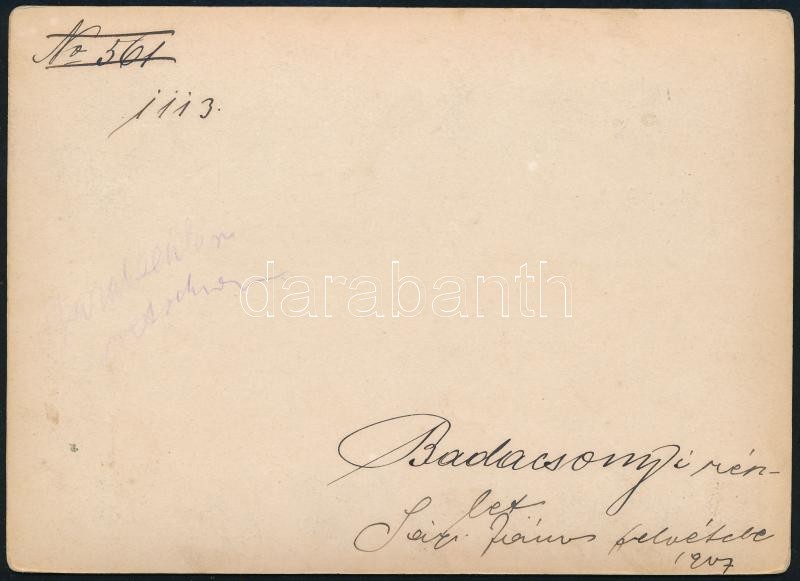 No 561
1113.
darabanth
Badacsonyi rén-
let
Sági János felvétele
1907